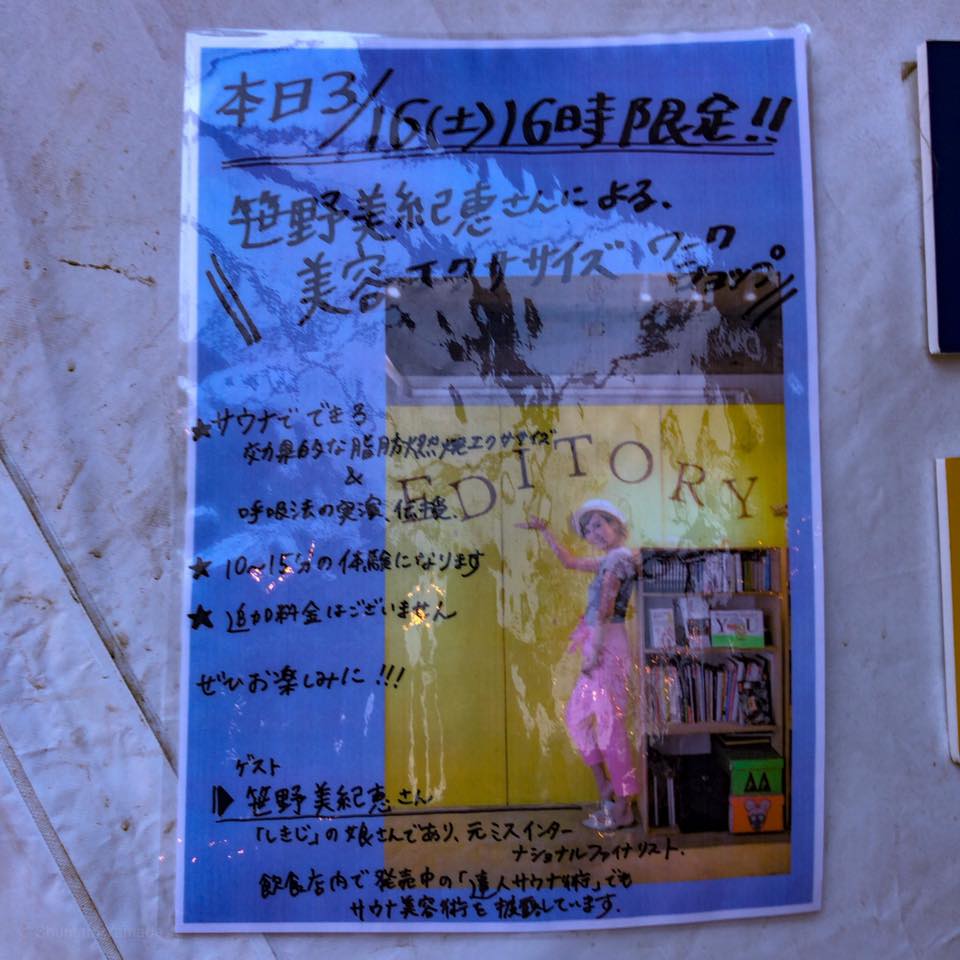 本日3/16(土)16時限定!!
笹野美紀恵さんによる、
美容エクササイズワークショップ
★サウナでできる
効果的な脂肪燃焼エクササイズ
&
呼吸法の実演、伝授。
★10~15分の体験になります
★追加料金はございません
ぜひお楽しみに!!!
EDITORY
YOU
ゲスト
笹野美紀恵さん
「しきじ」の娘さんであり、元ミスインター
ナショナルファイナリスト。
飲食店内で発売中の「達人サウナ術」でも
サウナ美容術を披露しています。